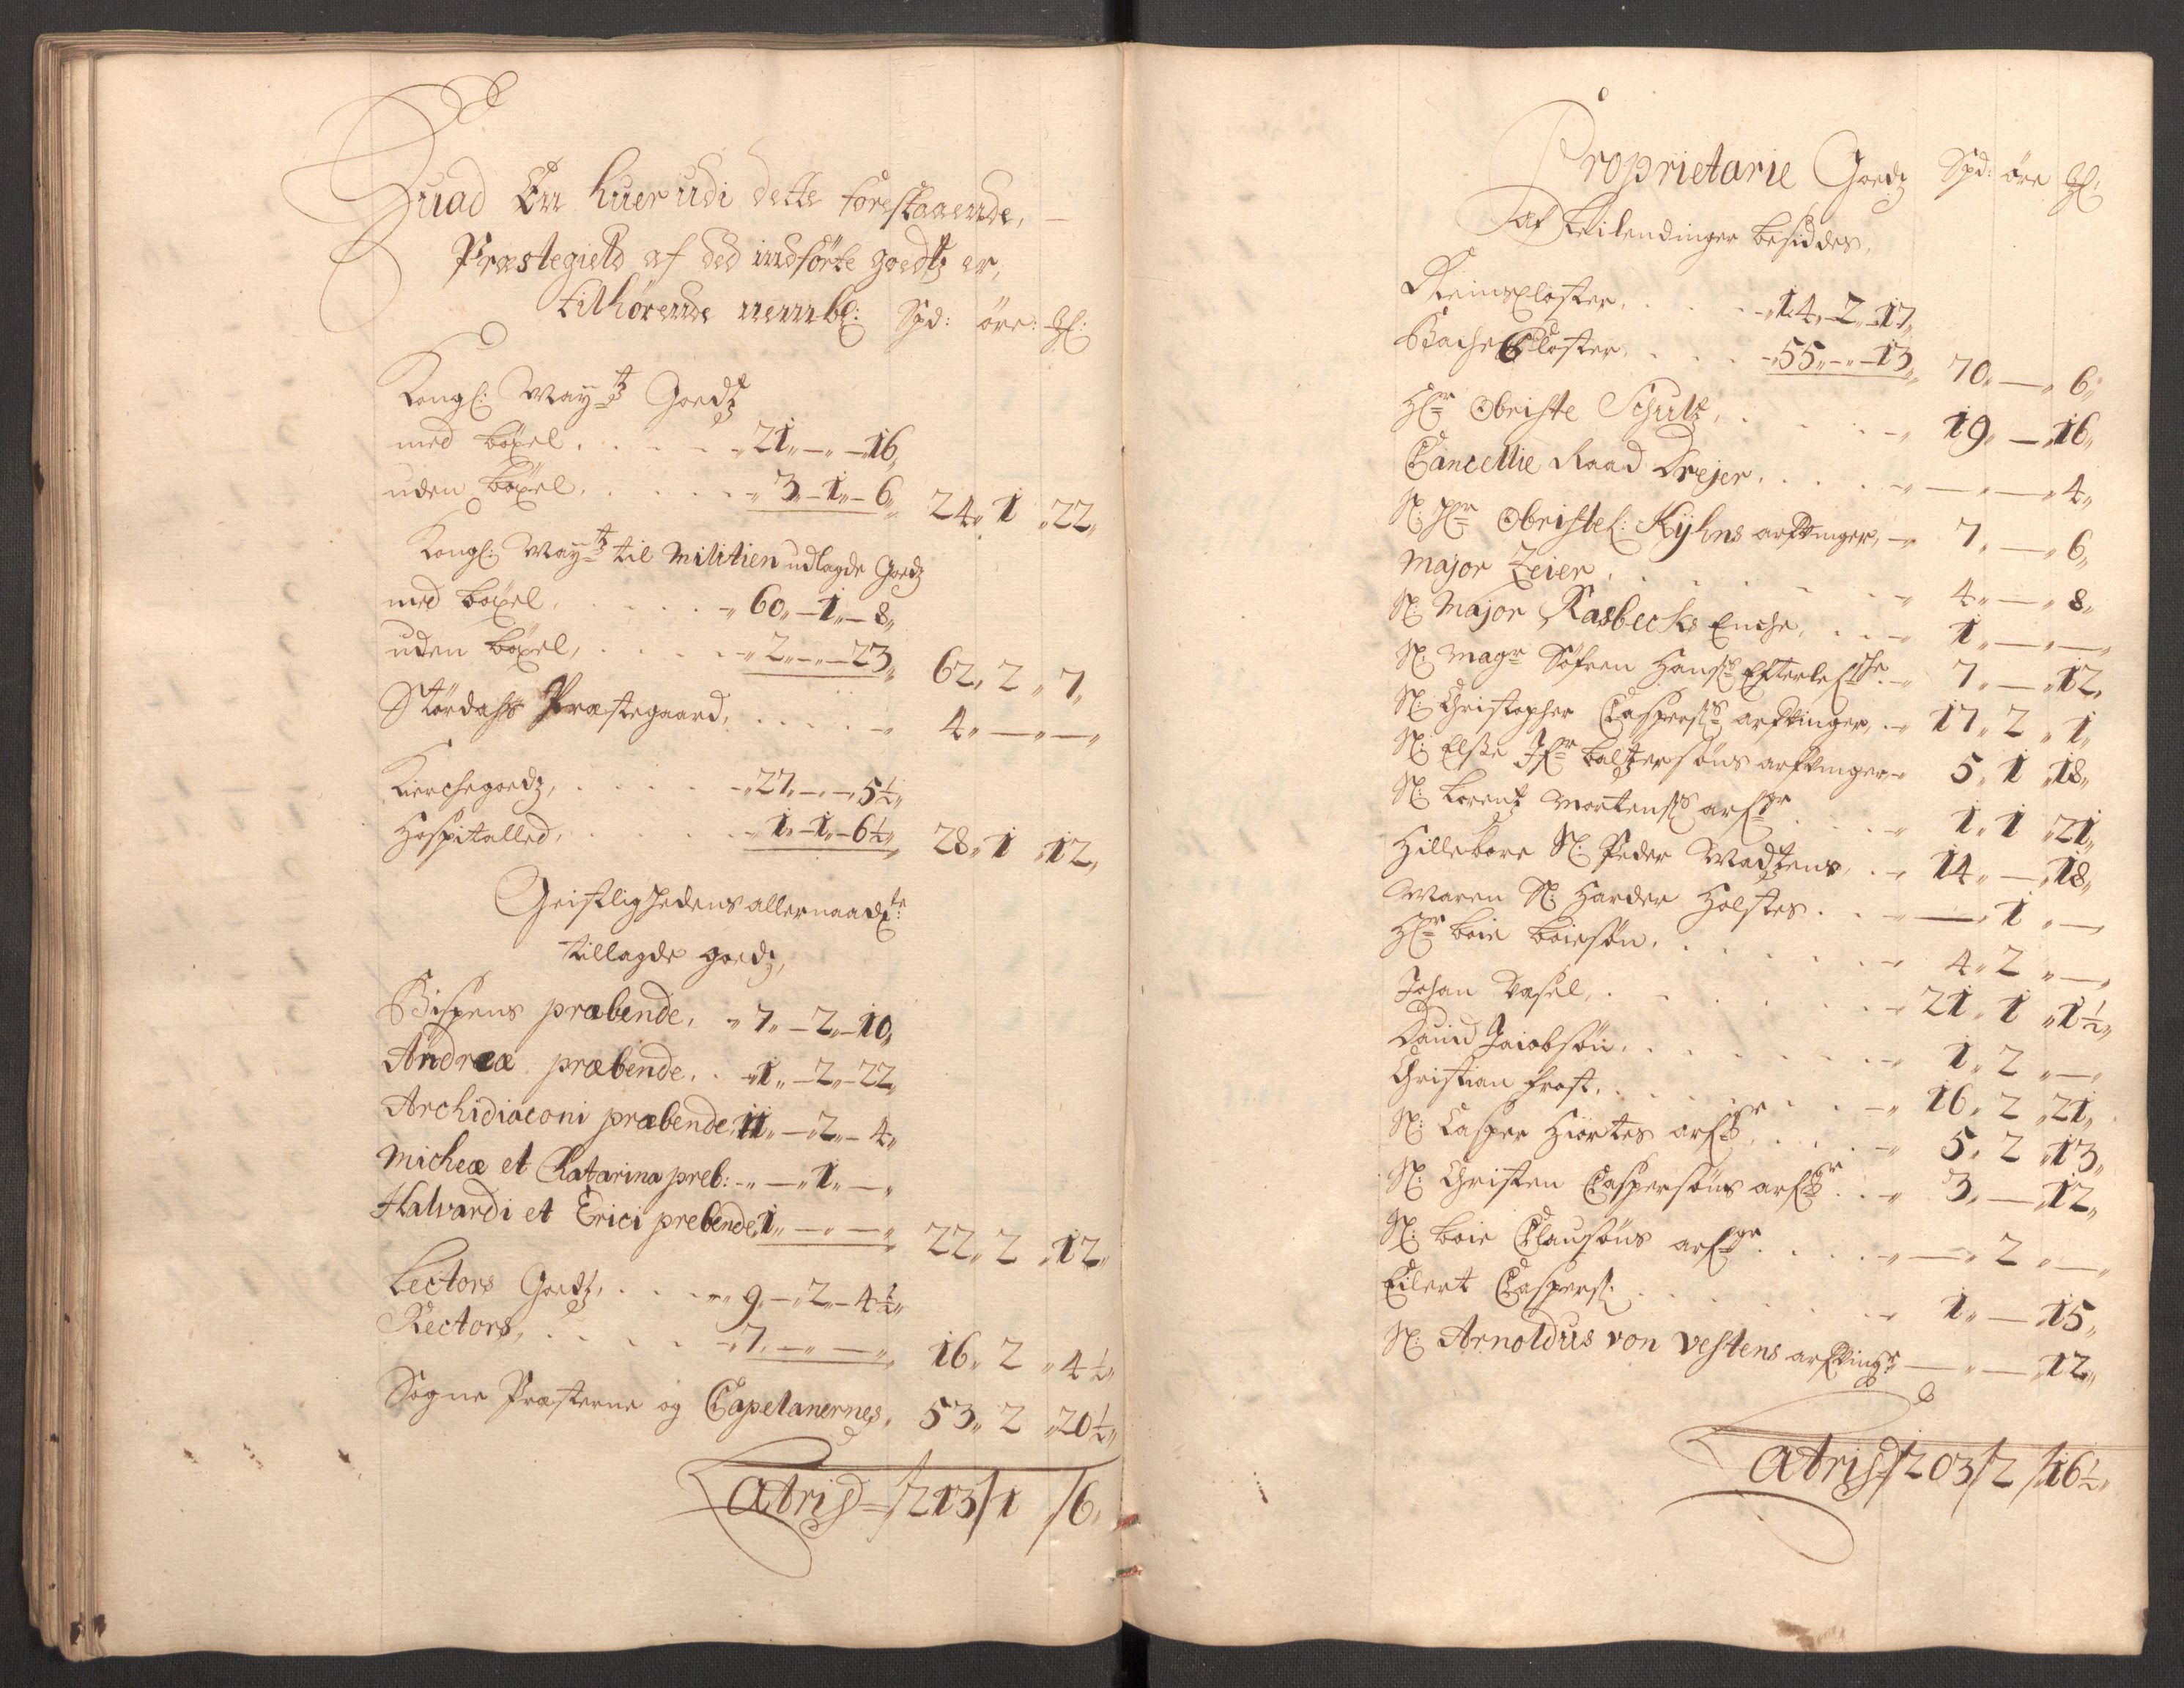 Huad En huer udi dette forestaaende,
Præstegield af ded indførte goedtz er,
tilhørende nembl: Spd: øre: Ms:
Kongl: May:tz Goedtz
med böxel . . . . 21,, — ,, — 16,,
uden böxel . . . . 3,, — 1,, — 6,, 24,, 1 ,, 22,,
Kongl: May:tz til Militien udlagde Goedtz
med böxel . . . . 60,, — 1,, — 8,,
uden böxel, . . . . 2,, — ,, — 23,, 62,, 2 ,, 7,,
Stördahls Præstegaard, . . . . 4,, — ,, — ,,
Kierchegoedtz, . . . . 27,, — ,, — 5½,,
Hospitalled, . . . . 1,, — 1,, — 6½,, 28,, 1 ,, 12,,
Geistlighedens allernaadste
tillagde goedtz,
Bispens præbende, ,, 7,, — 2,, — 10,,
Andreæ præbende . . ,, 1,, — 2,, — 22,,
Archidiaconi præbende, 11,, — 2,, — 4,,
Micheæ et Chatarina preb: ,, — ,, 1,, — ,,
Halvardi et Erici prebende, 1,, — ,, — ,, 22,, 2 ,, 12,,
Lectors Goedtz, . . . . 9,, — 2,, — 4½,,
Rectors, . . . . 7,, — ,, — ,, 16,, 2 ,, 4½,,
Sogne Præsterne og Capelanernes, 53,, 2 ,, 20½,,
Latris = / 213 / 1 / 6,,
Proprietarie Goedtz Spd: øre Ms:
af Leilendinger besiddes,
Reinscloster . . . . 14,, 2,, 17,,
Bache Closter . . . . 55,, — ,, — 13,, 70,, — ,, 6,,
Hr Obriste Schultz, . . . . 19,, — ,, 16,,
Cancellie Raad Drejer, . . . . — ,, — ,, 4,,
Sl: Hr Obristel: Kÿhns arfvinger, 7,, — ,, 6,,
Major Zeier . . . . 4,, — ,, 8,,
Sl: Major Rasbechs Enche, . . . 1,, — ,, — ,,
Sl: Magr Söfren Hans:s Efterlefsche . 7,, — ,, 12,,
Sl: Christopher Caspers:s arfvinger, 17,, 2 ,, 1,,
Sl: Elsse Jfr Baltzersöns arfvinger 5,, 1 ,, 18,,
Sl: Lorentz Mortens:s arfgr . . . . 1,, 1 ,, 21,,
Hillebore Sl: Peder Madtzens, . . 14,, — ,, 18,,
Maren Sl: Harder Holstes . . . — ,, 1 ,, — ,,
Hr Boie Boiesön, . . . . 4,, 2 ,, — ,,
Johan Vasel, . . . . 21,, 1 ,, 1½,,
Dauid Jacobsön, . . . . 1,, 2 ,, — ,,
Christian Frost, . . . . 16,, 2 ,, 21,,
Sl: Casper Hiortes arfgr . . . . 5,, 2 ,, 13,,
Sl: Christen Caspersöns arfgr . . 3,, — ,, 12,,
Sl: Boie Clausöns arfgr . . . . — ,, 2 ,, — ,,
Eilert Caspers: . . . . 1,, — ,, 15,,
Sl: Arnoldus von Vestens arfvingr — ,, — ,, 12,,
Latris / 203 / 2 / 16½,,